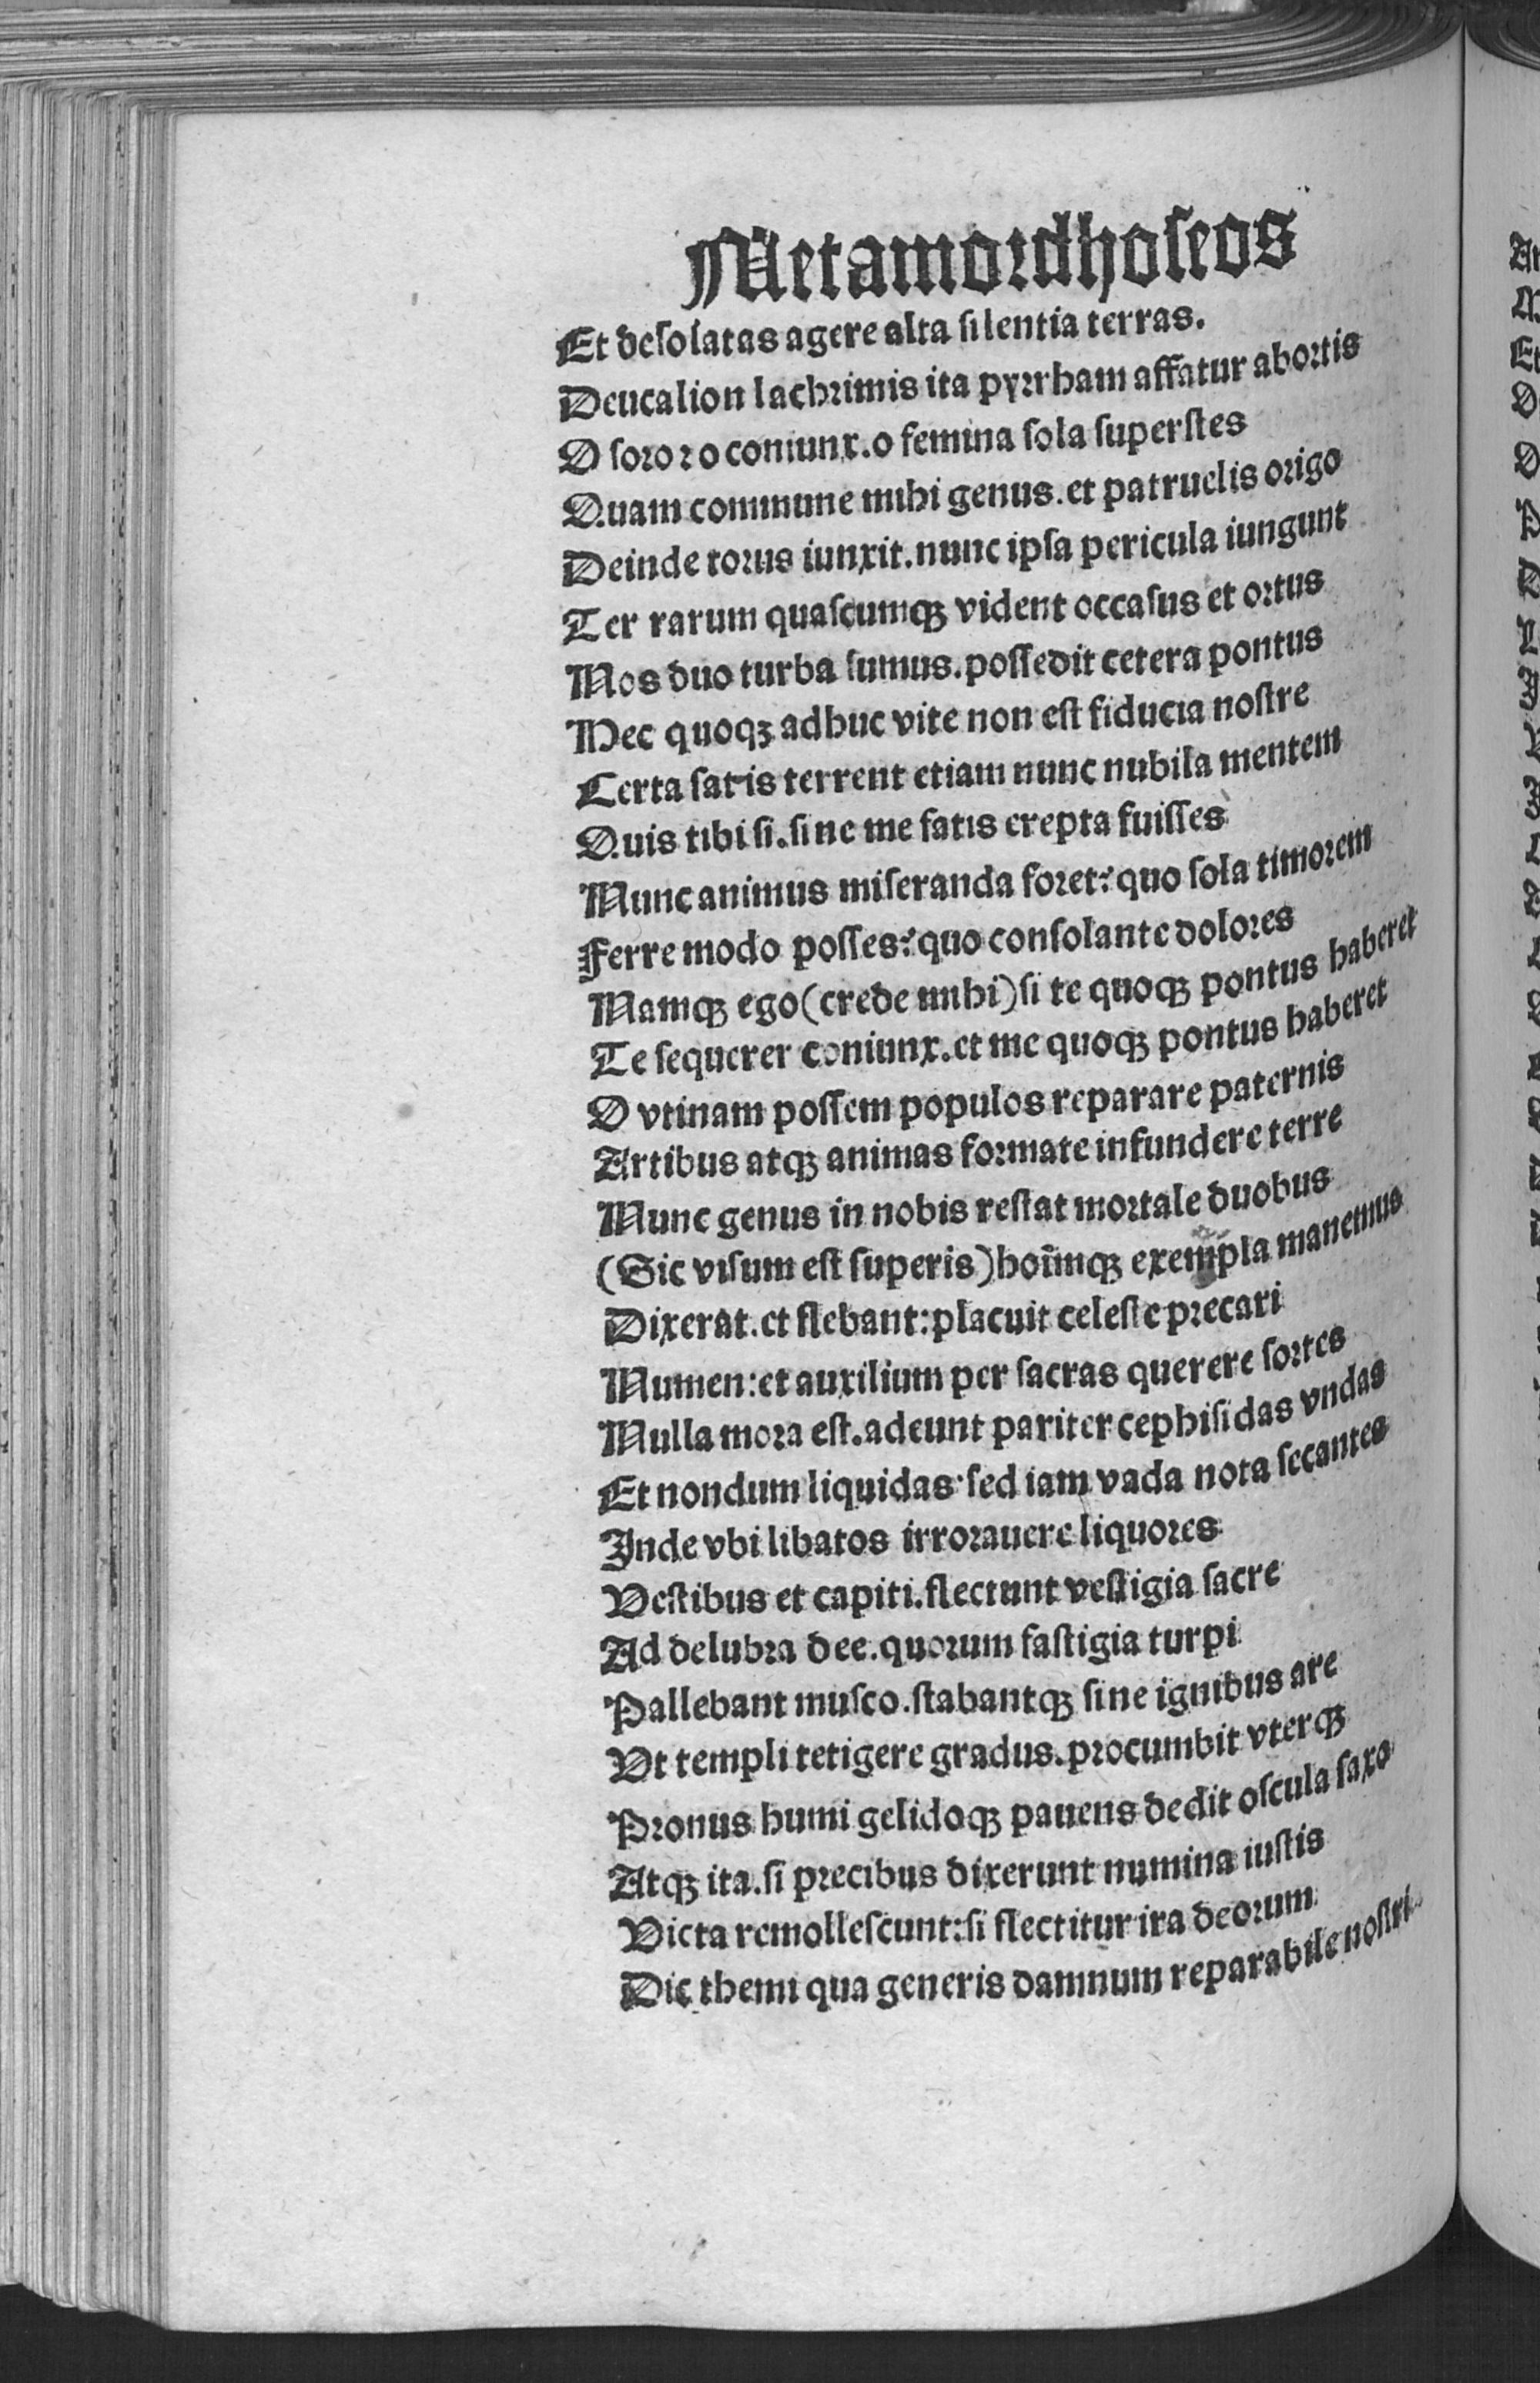 Metamordhoseos
Et desolatas agere alta silentia terras.
Deucalion lachrimis ita pyrrham affatur abortis
O soror o coniunx. o femina sola superstes
Quam commune mihi genus. et patruelis origo
Deinde torus iunxit. nunc ipsa pericula iungunt
Ter rarum quascumqꝫ vident occasus et ortus
Nos duo turba sumus. possedit cetera pontus
Nec quoqꝫ adhuc vite non est fiducia nostre
Certa satis terrent etiam nunc nubila mentem
Quis tibi si. sine me fatis erepta fuisses
Nunc animus miseranda foret? quo sola timorem
Ferre modo posses? quo consolante dolores
Namqꝫ ego (crede mihi) si te quoqꝫ pontus haberet
Te sequerer coniunx. et me quoqꝫ pontus haberet
O vtinam possem populos reparare paternis
Artibus atqꝫ animas formate infundere terre
Nunc genus in nobis restat mortale duobus
(Sic visum est superis) hoīmqꝫ exempla manemus
Dixerat. et flebant: placuit celeste precari
Numen: et auxilium per sacras querere sortes
Nulla mora est. adeunt pariter cephisidas vndas
Et nondum liquidas· sed iam vada nota secantes
Inde vbi libatos irrorauere liquores
Vestibus et capiti. flectunt vestigia sacre
Ad delubra dee. quorum fastigia turpi
Pallebant musco. stabantqꝫ sine ignibus are
Vt templi tetigere gradus. procumbit vterqꝫ
Pronus humi gelidoqꝫ pauens dedit oscula saxo
Atqꝫ ita. si precibus dixerunt numina iustis
Victa remollescunt: si flectitur ira deorum
Dic themi qua generis damnum reparabile nostri